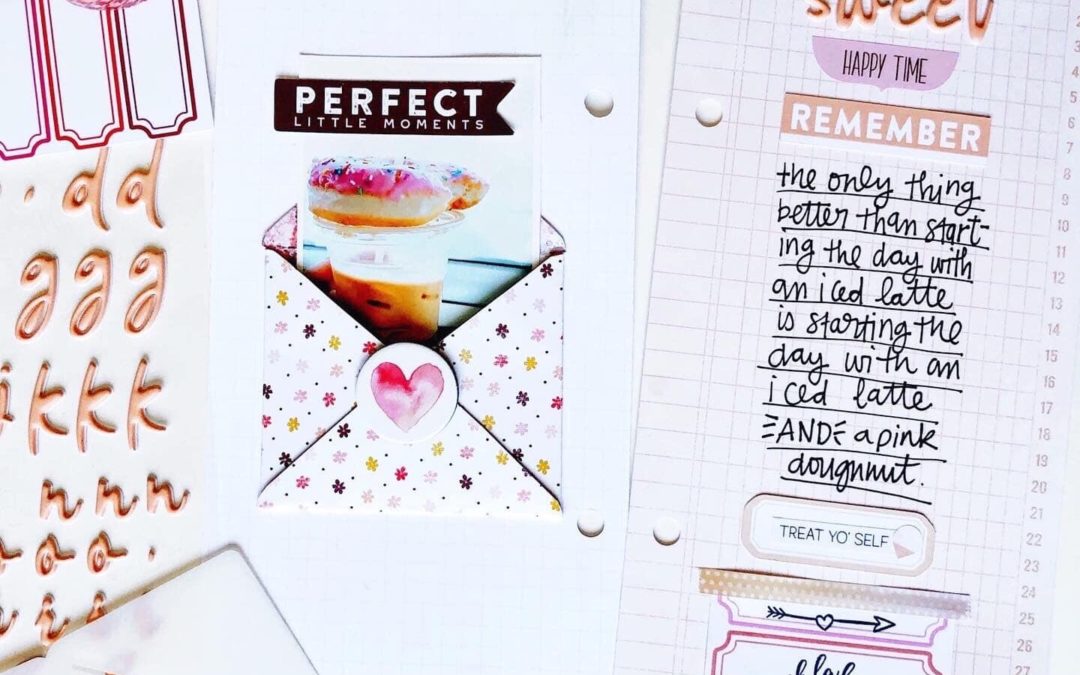 dd
ggg
kkk
nnn
PERFECT
LITTLE MOMENTS
sweet
HAPPY TIME
REMEMBER
the only thing
better than start-
ing the day with
an iced latte
is starting the
day with an
iced latte
AND a pink
doughnut.
TREAT YO' SELF
3
4
5
6
7
8
9
10
11
12
13
14
15
16
17
18
19
20
21
22
23
24
25
26
27